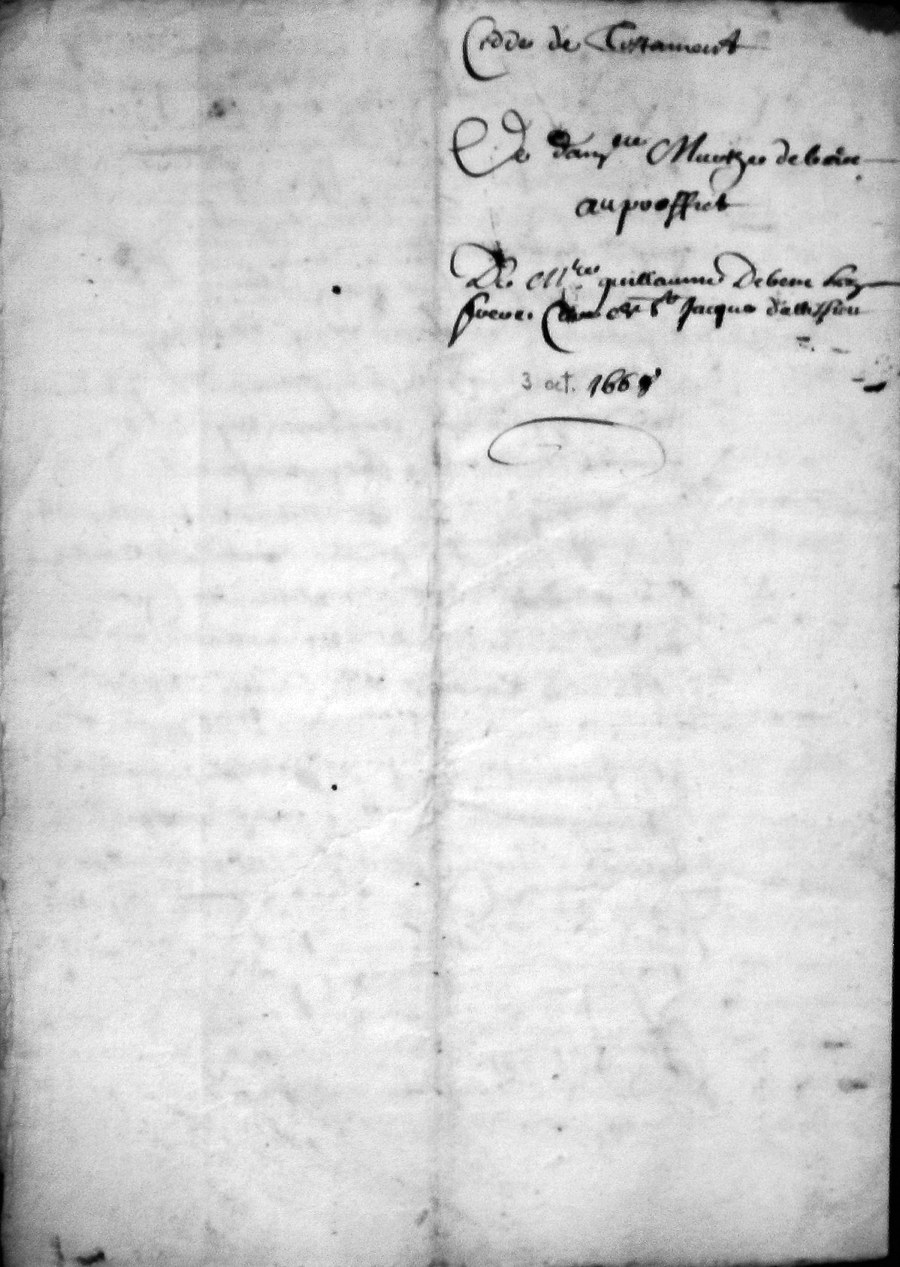 Cedde de Testament
De dam^lle Martze debeine
au proffict
De M^re guillaume Debeine
frere et S^r Jacques
3 oct. 1668